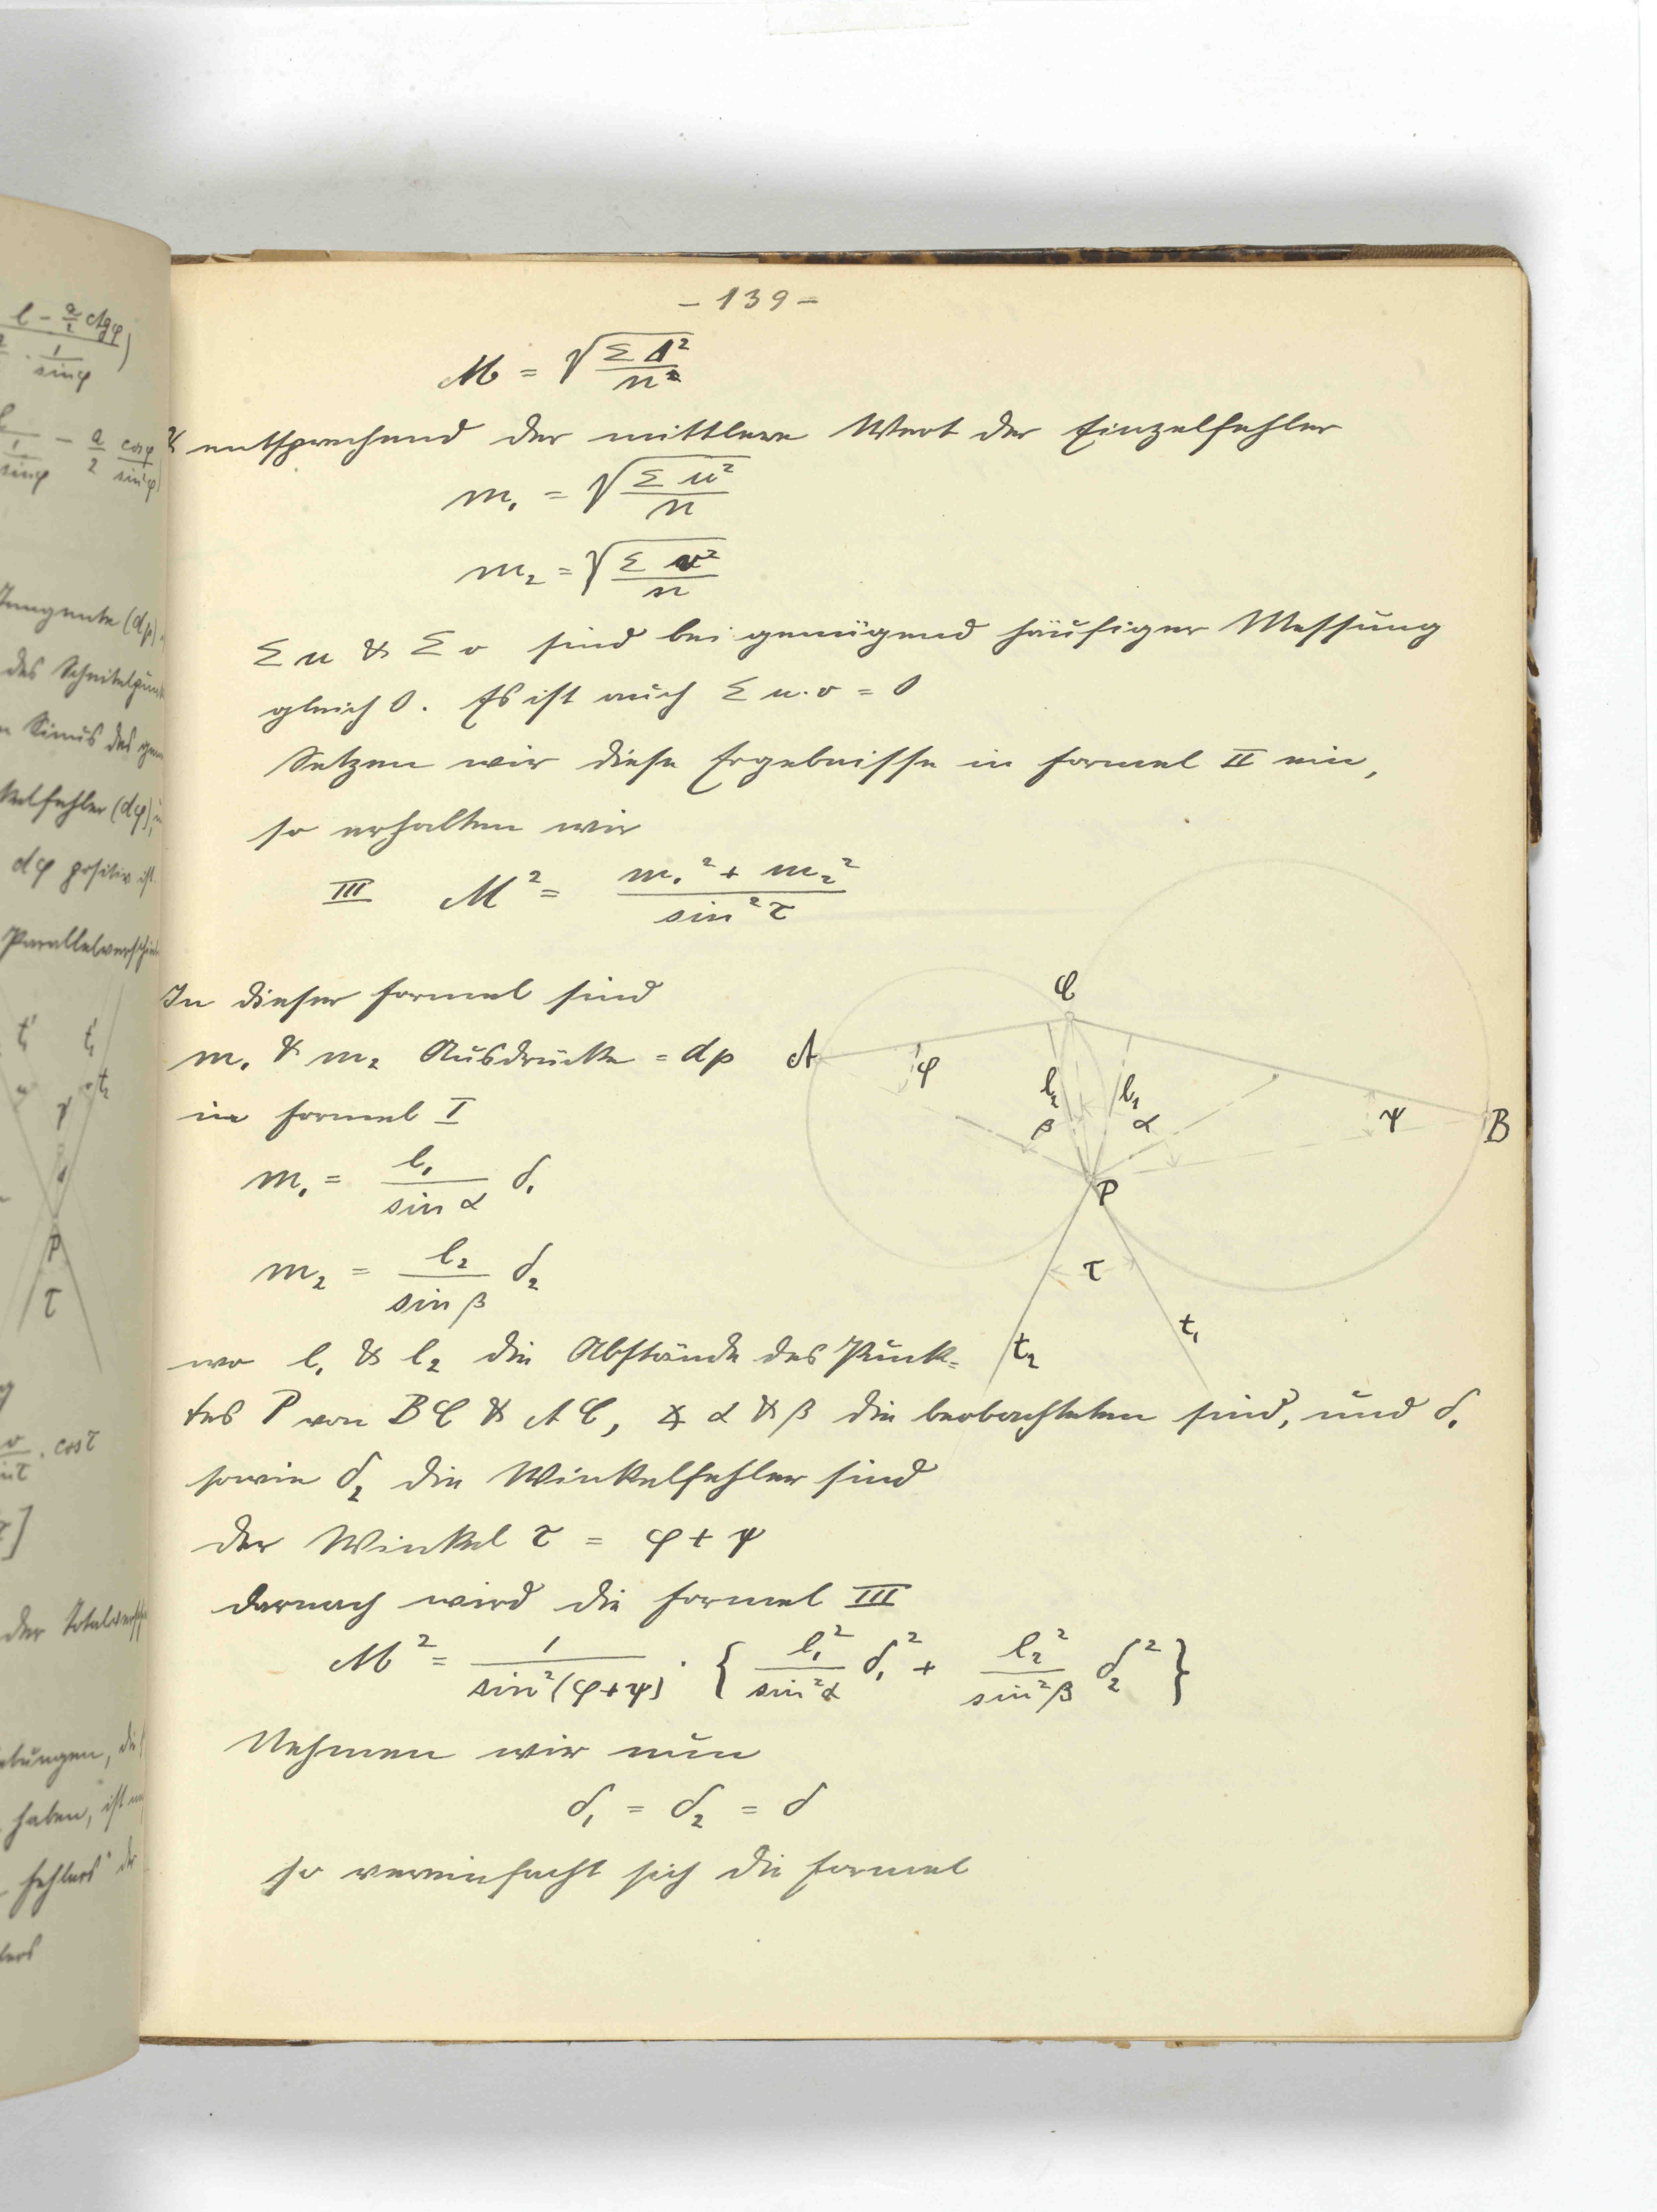 - 139 -
M = √(Σ Δ² / n)
& entsprechend der mittlere Wert der Einzelfehler
m₁ = √(Σ u² / n)
m₂ = √(Σ v² / n)
Σ u & Σ v sind bei genügend häufiger Messung
gleich 0. Es ist auch Σ u·v = 0
Setzen wir diese Ergebnisse in Formel II ein,
so erhalten wir
III M² = (m₁² + m₂²) / sin² τ
In dieser Formel sind
m₁ & m₂ Ausdrücke = dp
in Formel I
m₁ = l₁ / sin α δ₁
m₂ = l₂ / sin β δ₂
C
A
φ
l₂
l₁
β
α
ψ
B
P
τ
t₂
t₁
wo l₁ & l₂ die Abstände des Punk=
tes P von BC & AC, ∡ α & β die beobachteten sind, und δ₁
sowie δ₂ die Winkelfehler sind
der Winkel τ = φ + ψ
darnach wird die Formel III
M² = 1 / sin² (φ + ψ) · { l₁² / sin² α δ₁² + l₂² / sin² β δ₂² }
Nehmen wir nun
δ₁ = δ₂ = δ
so vereinfacht sich die Formel
l - a/2 ctg φ)
1 / sin φ
- a/2 cos φ / sin² φ
Tangente (dp)
des
Sinus des
(dφ),
dφ positiv ist
t₁'
t₂
γ
P
τ
· cos τ
der
haben, ist
Fehlers der